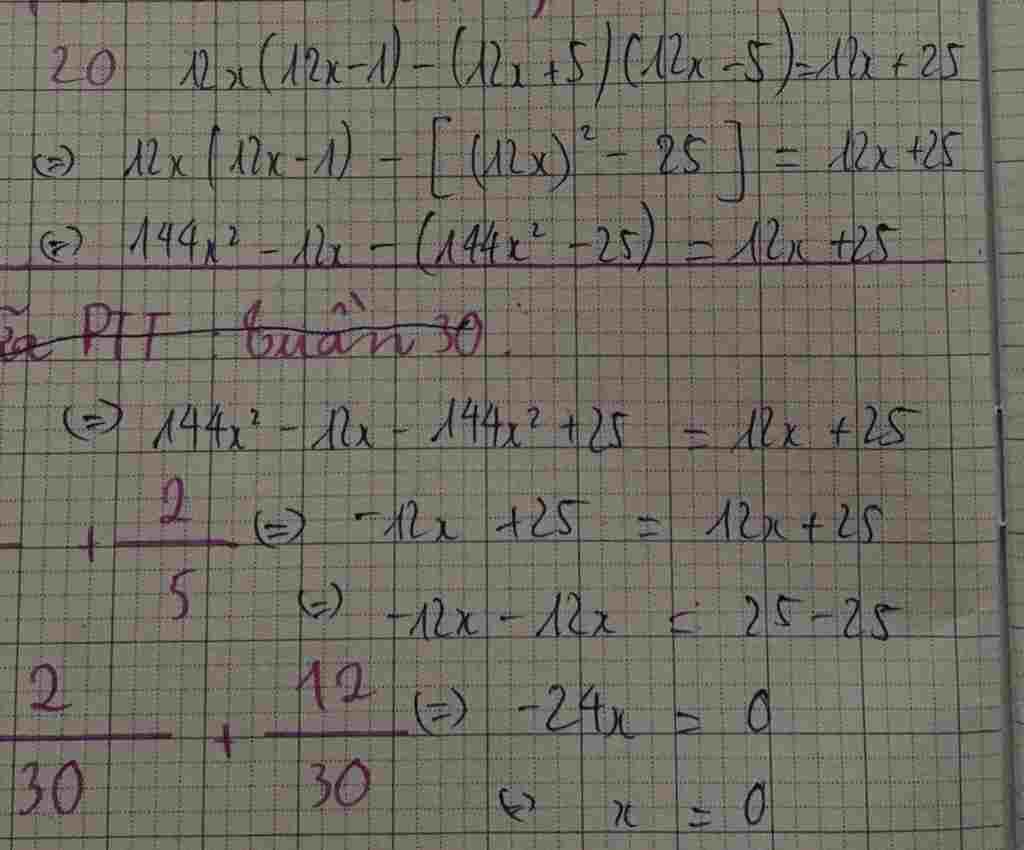 20 12x(12x-1)-(12x+5)(12x-5)=12x+25
(=) 12x(12x-1)-[(12x)²-25]=12x+25
(=) 144x²-12x-(144x²-25)=12x+25
PTT tuần 30
(=) 144x²-12x-144x²+25=12x+25
+ 2/5 (=) -12x+25=12x+25
(=) -12x-12x=25-25
2/30 + 12/30 (=) -24x=0
(=) x=0